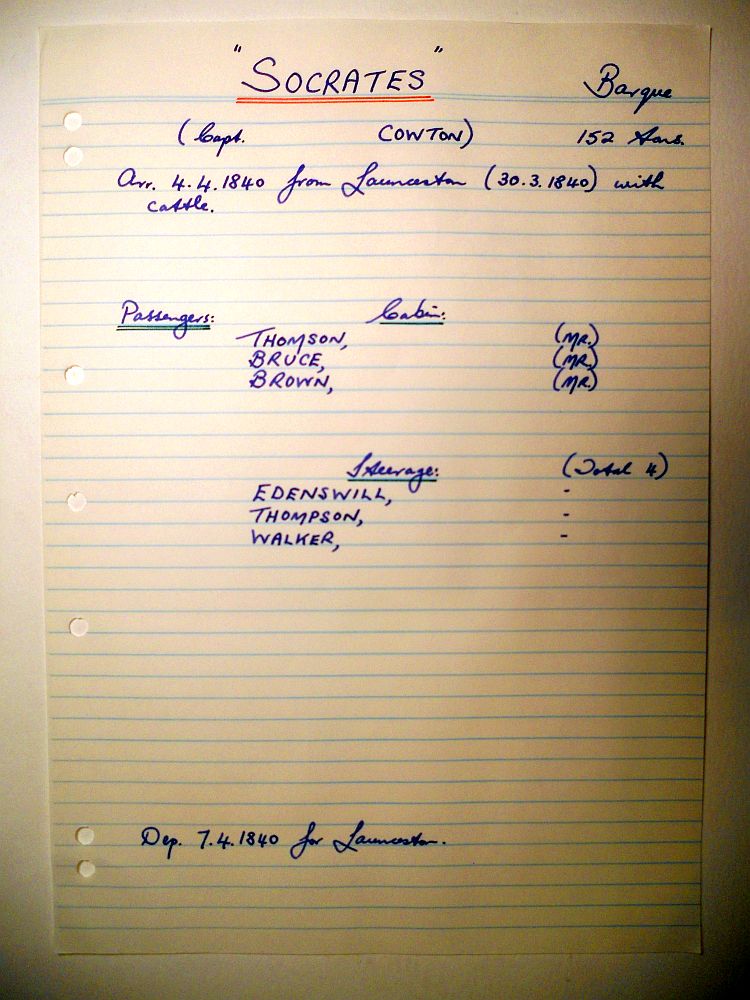 "SOCRATES" Barque
(Capt. COWTON) 152 tons.
Arr. 4.4.1840 from Launceston (30.3.1840) with
cattle.
Passengers: Cabin:
THOMSON, (MR.)
BRUCE, (MR.)
BROWN, (MR.)
Steerage: (Total 4)
EDENSWILL, -
THOMPSON, -
WALKER, -
Dep. 7.4.1840 for Launceston.